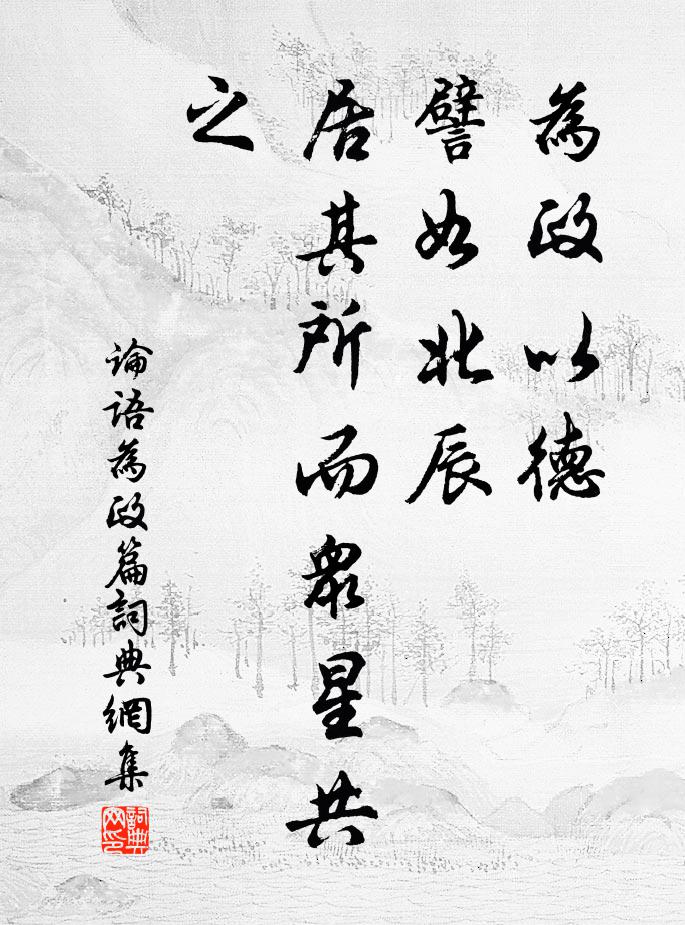 為政以德
譬如北辰
居其所而眾星共
之
論語為政篇詞典網集
詞典网印